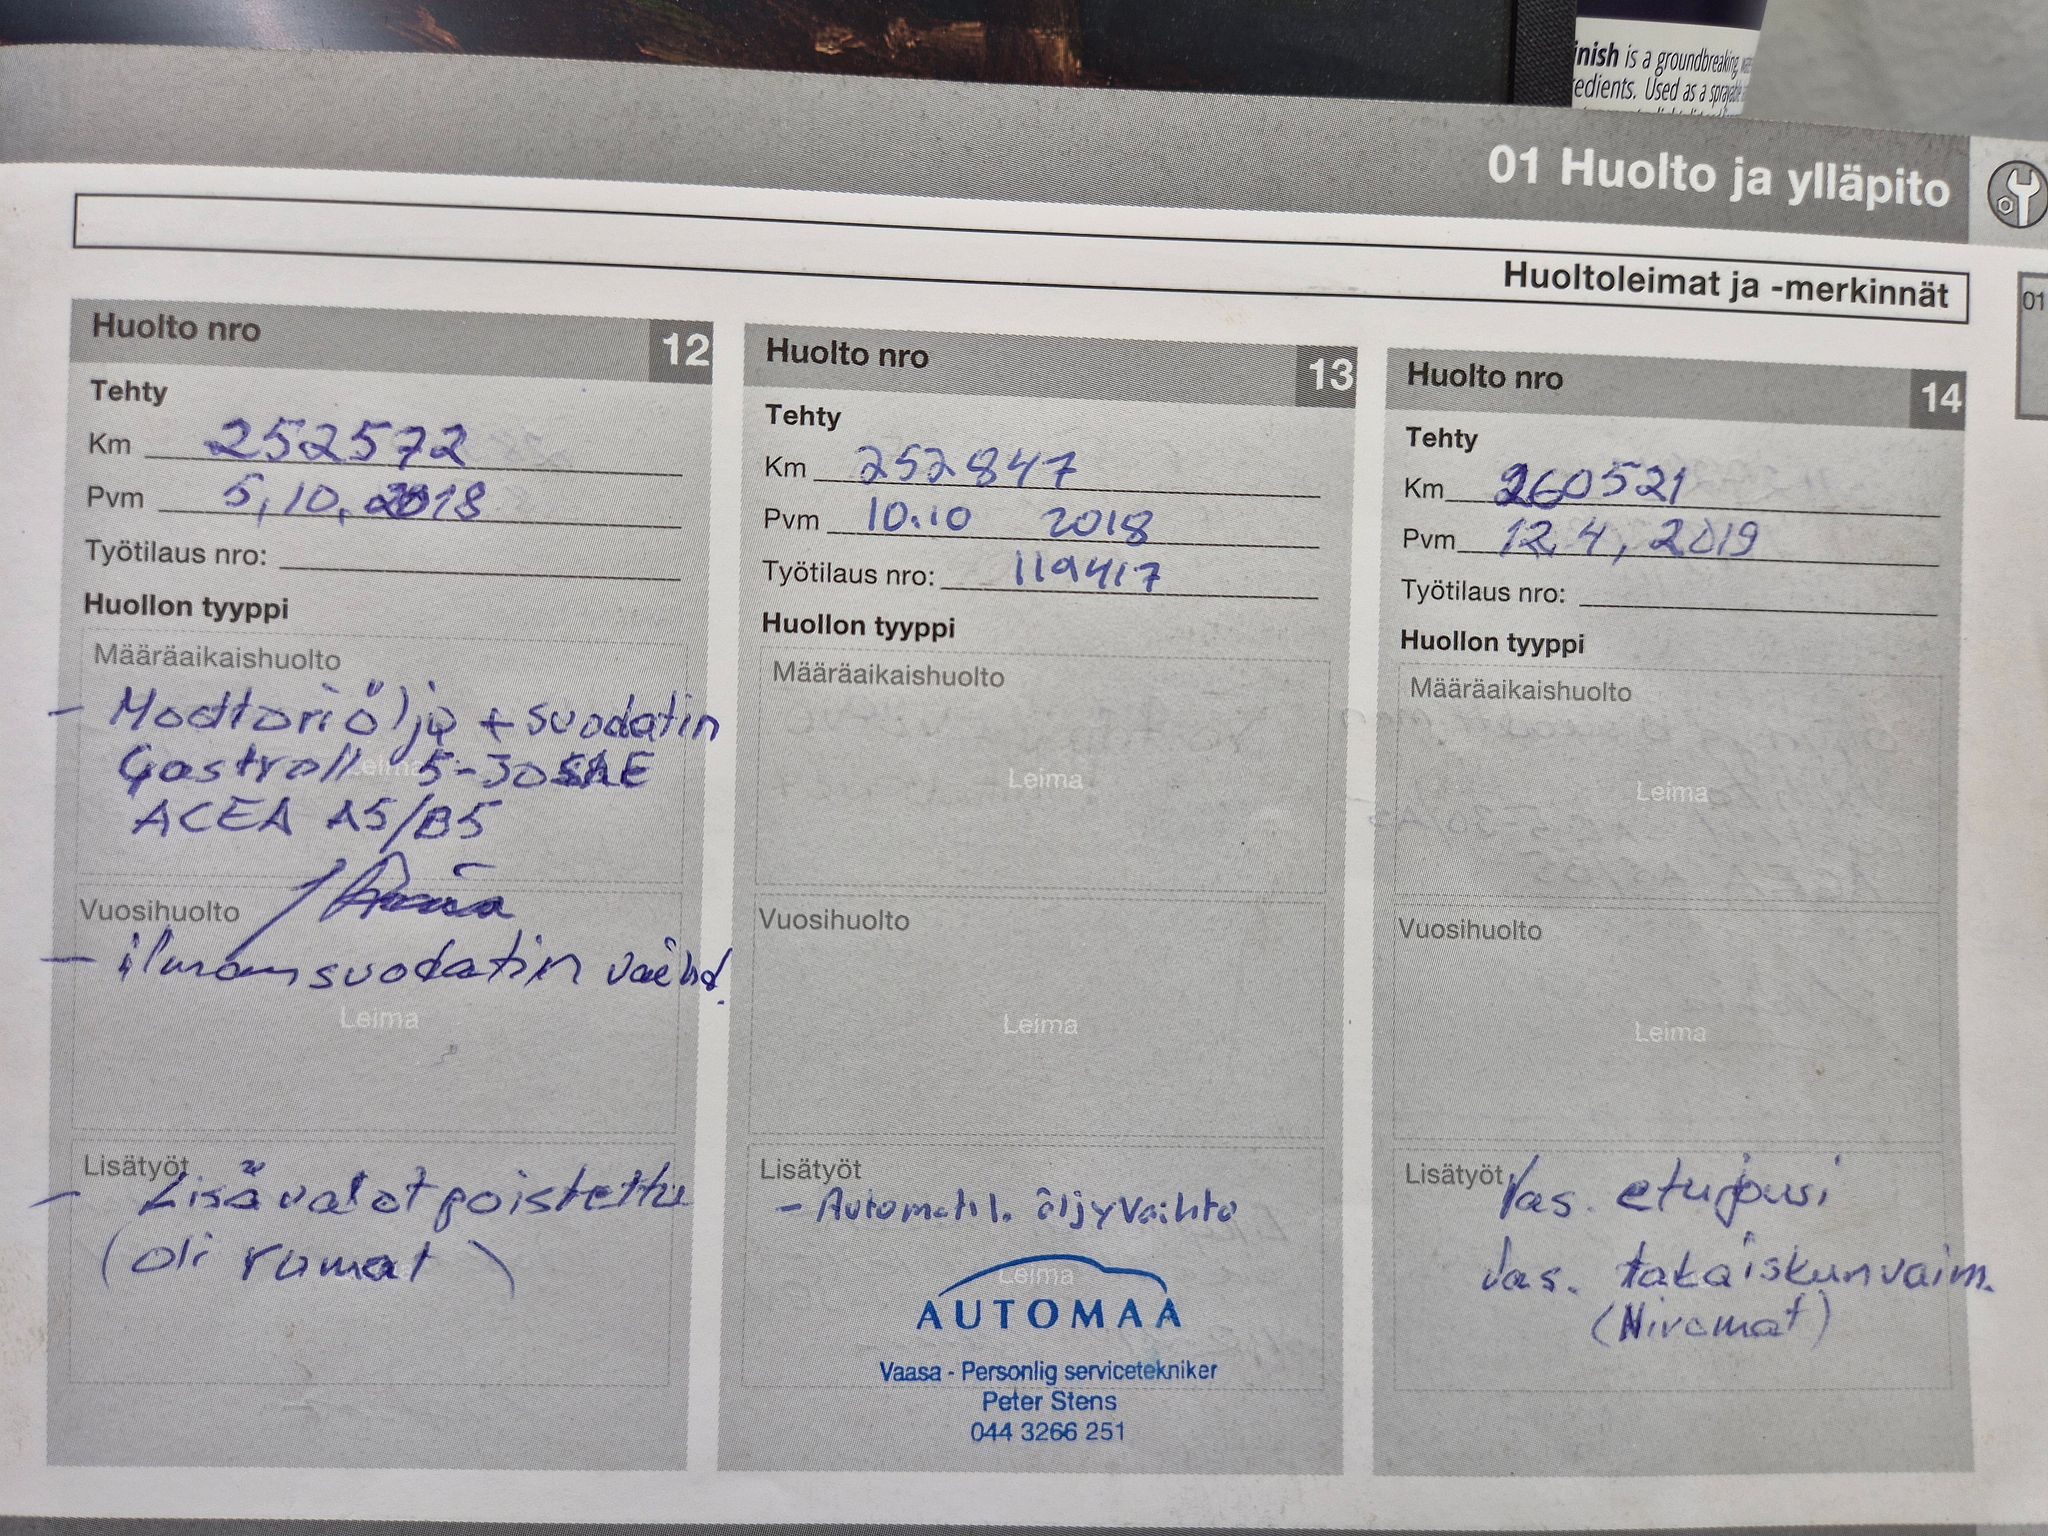 inish is a groundbreaking,
redients. Used as a sprayable
01 Huolto ja ylläpito
Huoltoleimat ja -merkinnät
01
Huolto nro 12
Tehty
Km 252572
Pvm 5,10,2018
Työtilaus nro:
Huollon tyyppi
Määräaikaishuolto
- Moottoriöljy + suodatin
Castroll 5-30 SAE
Leima
ACEA A5/B5
Vuosihuolto
- ilmansuodatin vaihd.
Leima
Lisätyöt
- Lisävalot poistettu
(oli rumat)
Huolto nro 13
Tehty
Km 252847
Pvm 10.10 2018
Työtilaus nro: 119417
Huollon tyyppi
Määräaikaishuolto
Leima
Vuosihuolto
Leima
Lisätyöt
- Automatil. öljyvaihto
Leima
AUTOMAA
Vaasa - Personlig servicetekniker
Peter Stens
044 3266 251
Huolto nro 14
Tehty
Km 260521
Pvm 12.4, 2019
Työtilaus nro:
Huollon tyyppi
Määräaikaishuolto
Leima
Vuosihuolto
Leima
Lisätyöt
Vas. etujousi
Vas. takaiskunvaim.
(Nivomat)